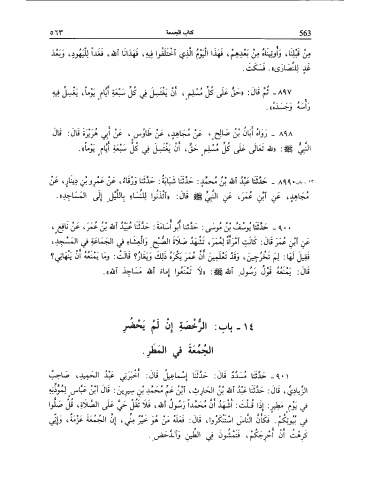 ٥٦٣ كتاب الجمعة 563
مِنْ قَبْلِنَا، وَأُوتِينَاهُ مِنْ بَعْدِهِمْ، فَهَذَا الْيَوْمُ الَّذِي اخْتَلَفُوا فِيهِ، فَهَدَانَا اللهُ، فَغَداً لِلْيَهُودِ، وَبَعْدَ
غَدٍ لِلنَّصَارَى». فَسَكَتَ.
٨٩٧ - ثُمَّ قَالَ: «حَقٌّ عَلَى كُلِّ مُسْلِمٍ، أَنْ يَغْتَسِلَ فِي كُلِّ سَبْعَةِ أَيَّامٍ يَوْماً، يَغْسِلُ فِيهِ
رَأْسَهُ وَجَسَدَهُ».
٨٩٨ - رَوَاهُ أَبَانُ بْنُ صَالِحٍ، عَنْ مُجَاهِدٍ، عَنْ طَاوُسٍ، عَنْ أَبِي هُرَيْرَةَ قَالَ: قَالَ
النَّبِيُّ ﷺ: «للهِ تَعَالَى عَلَى كُلِّ مُسْلِمٍ حَقٌّ، أَنْ يَغْتَسِلَ فِي كُلِّ سَبْعَةِ أَيَّامٍ يَوْماً».
٨٩٩ - حَدَّثَنَا عَبْدُ اللهِ بْنُ مُحَمَّدٍ: حَدَّثَنَا شَبَابَةُ: حَدَّثَنَا وَرْقَاءُ، عَنْ عَمْرِو بْنِ دِينَارٍ، عَنْ
مُجَاهِدٍ، عَنِ ابْنِ عُمَرَ، عَنِ النَّبِيِّ ﷺ قَالَ: «ائْذَنُوا لِلنِّسَاءِ بِاللَّيْلِ إِلَى الْمَسَاجِدِ».
٩٠٠ - حَدَّثَنَا يُوسُفُ بْنُ مُوسَى: حَدَّثَنَا أَبُو أُسَامَةَ: حَدَّثَنَا عُبَيْدُ اللهِ بْنُ عُمَرَ، عَنْ نَافِعٍ،
عَنِ ابْنِ عُمَرَ قَالَ: كَانَتِ امْرَأَةٌ لِعُمَرَ، تَشْهَدُ صَلَاةَ الصُّبْحِ وَالْعِشَاءِ فِي الْجَمَاعَةِ فِي الْمَسْجِدِ،
فَقِيلَ لَهَا: لِمَ تَخْرُجِينَ، وَقَدْ تَعْلَمِينَ أَنَّ عُمَرَ يَكْرَهُ ذَلِكَ وَيَغَارُ؟ قَالَتْ: وَمَا يَمْنَعُهُ أَنْ يَنْهَانِي؟
قَالَ: يَمْنَعُهُ قَوْلُ رَسُولِ اللهِ ﷺ: «لَا تَمْنَعُوا إِمَاءَ اللهِ مَسَاجِدَ اللهِ».
١٤ - باب: الرُّخْصَةِ إِنْ لَمْ يَحْضُرِ
الْجُمُعَةَ فِي الْمَطَرِ.
٩٠١ - حَدَّثَنَا مُسَدَّدٌ قَالَ: حَدَّثَنَا إِسْمَاعِيلُ قَالَ: أَخْبَرَنِي عَبْدُ الْحَمِيدِ، صَاحِبُ
الزِّيَادِيِّ، قَالَ: حَدَّثَنَا عَبْدُ اللهِ بْنُ الْحَارِثِ، ابْنُ عَمِّ مُحَمَّدِ بْنِ سِيرِينَ: قَالَ ابْنُ عَبَّاسٍ لِمُؤَذِّنِهِ
فِي يَوْمٍ مَطِيرٍ: إِذَا قُلْتَ: أَشْهَدُ أَنَّ مُحَمَّداً رَسُولُ اللهِ، فَلَا تَقُلْ حَيَّ عَلَى الصَّلَاةِ، قُلْ صَلُّوا
فِي بُيُوتِكُمْ. فَكَأَنَّ النَّاسَ اسْتَنْكَرُوا، قَالَ: فَعَلَهُ مَنْ هُوَ خَيْرٌ مِنِّي، إِنَّ الْجُمُعَةَ عَزْمَةٌ، وَإِنِّي
كَرِهْتُ أَنْ أُحْرِجَكُمْ، فَتَمْشُونَ فِي الطِّينِ وَالدَّحَضِ.